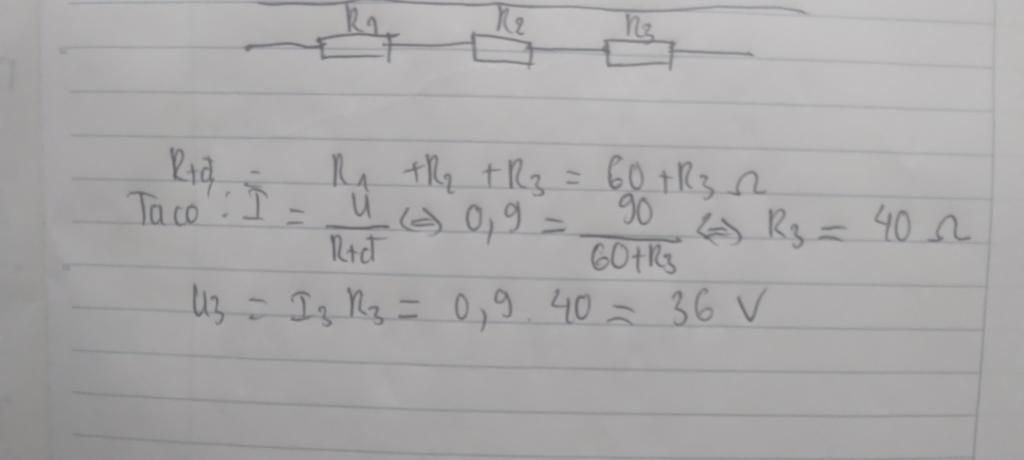 R1 R2 R3
Rtđ = R1 + R2 + R3 = 60 + R3 Ω
Ta có : I = U/Rtđ ⇔ 0,9 = 90/(60+R3) ⇔ R3 = 40 Ω
U3 = I3 R3 = 0,9 . 40 = 36 V